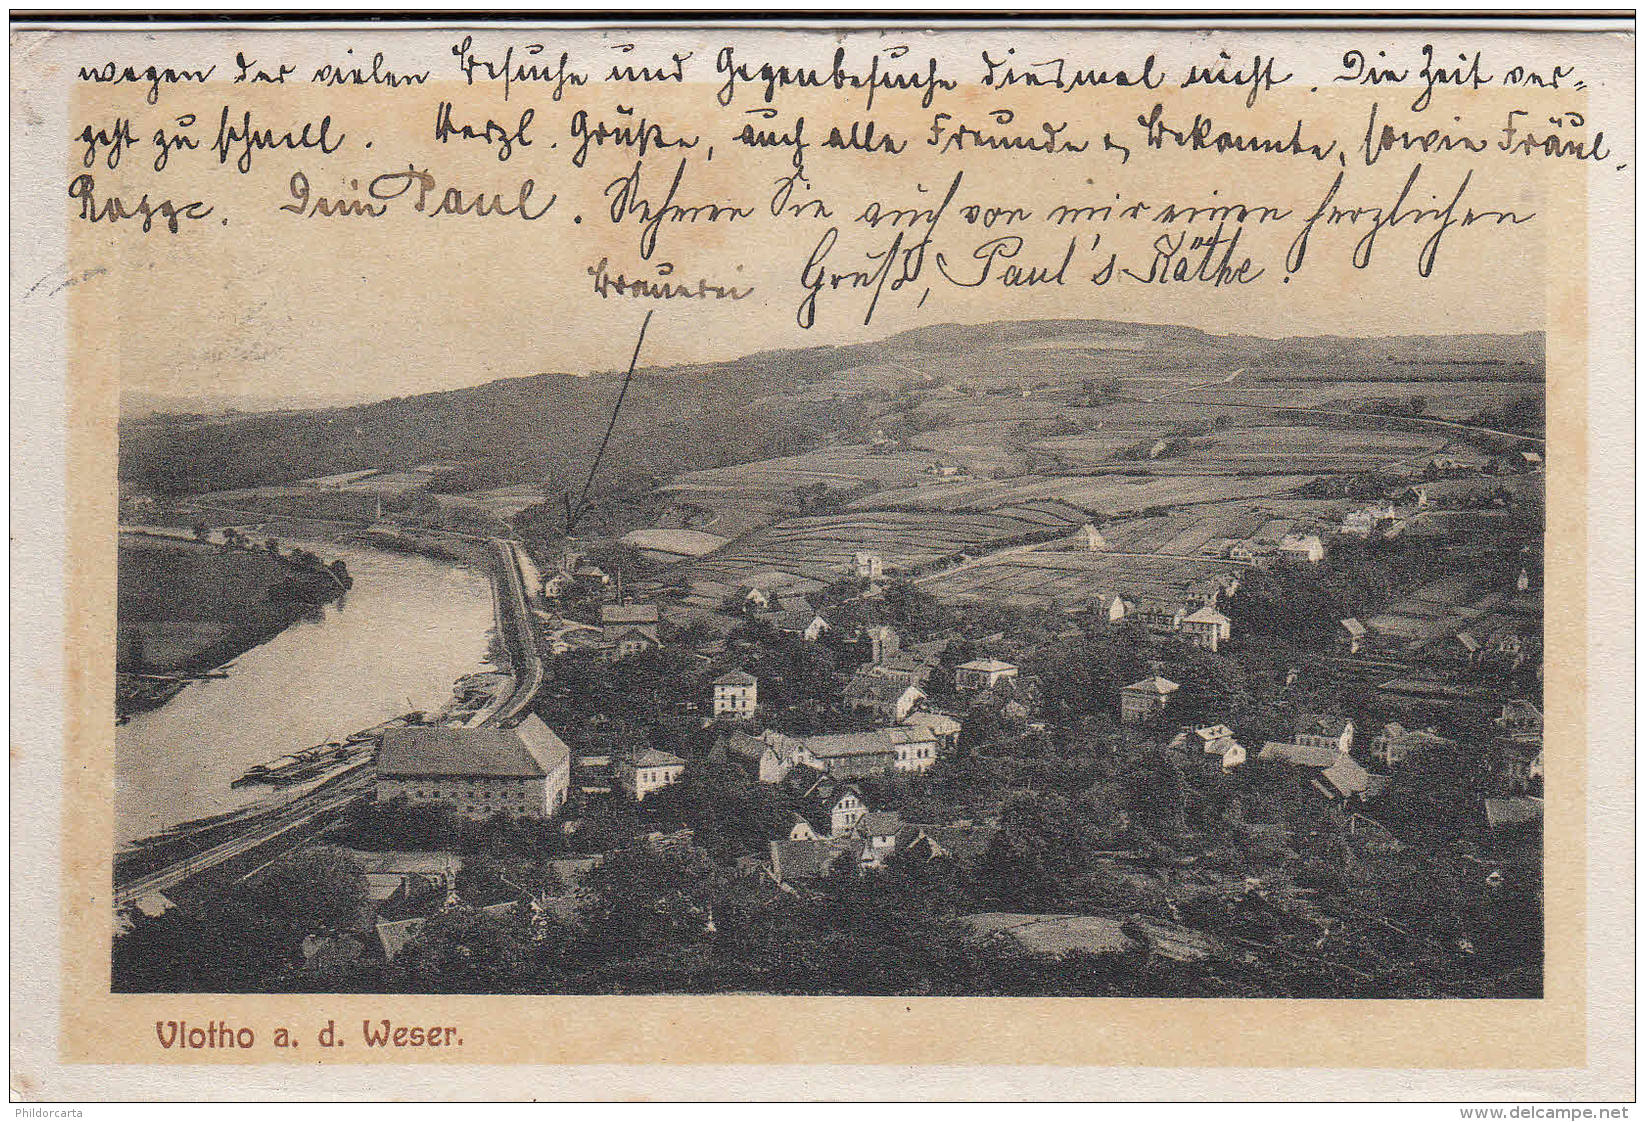 wegen der vielen Besuche und Gegenbesuche diesmal nicht. Die Zeit ver=
geht zu schnell. Herzl. Grüße, auch alle Freunde & Bekannte, sowie Fräul.
Rogge. Dein Paul. Nehmen Sie auch von mir einen herzlichen
Gruß, Paul's Käthe.
Brauerei
Vlotho a. d. Weser.
Phildorcarta
www.delcampe.net